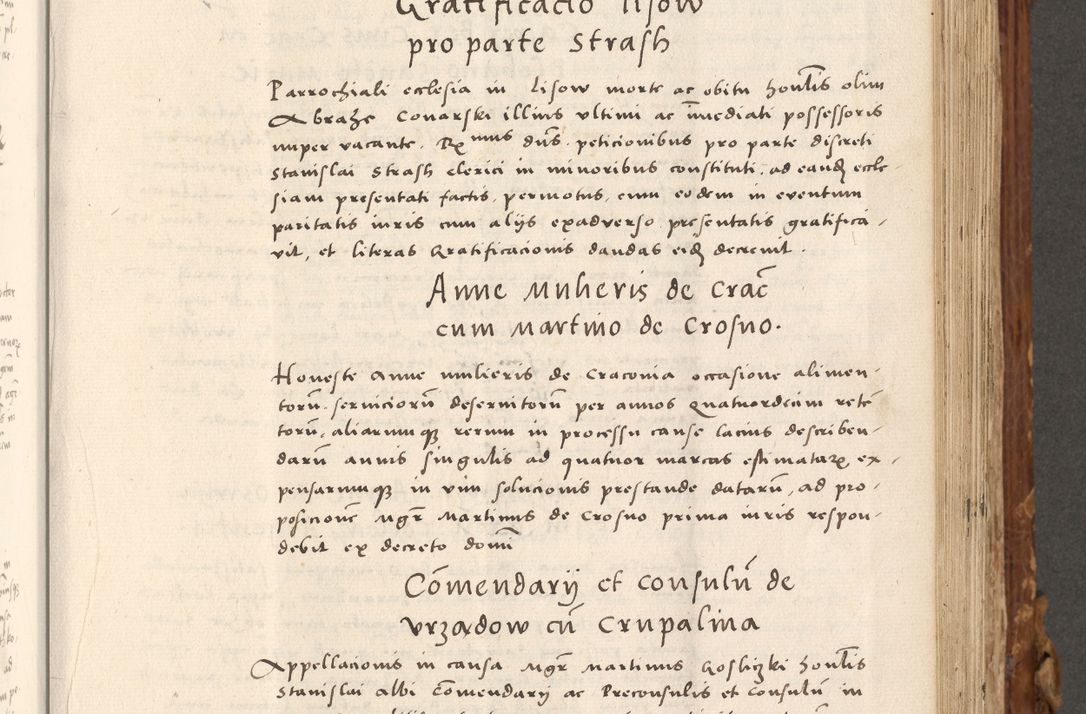 Gratificacio Lisow
pro parte Strash
Parrochiali ecclesia in Lisow morte ac obitu honlis olim
Abrahe Conarski illius ultimi ac imediati possessoris
nuper vacante. Rmus dns peticionibus pro parte discreti
Stanislai Strash clerici in minoribus constituti, ad eand eccle
siam presentati factis, permotus, eum eodem in eventum
paritatis iuris cum alijs exadverso presentatis gratifica-
vit, et literas Gratificacionis dandas eid decrevit.
Anne Mulieris de Crac
cum Martino de Crosno.
Honeste Anne mulieris de Cracovia occasione alimen-
torũ. serviciorũ deservitorũ per annos quatuordecim retẽ
torũ, aliarumque rerum in processu cause lacius describen-
darũ annis singulis ad quatuor marcas estimatarꝝ ex-
pensarumque in vim solucionis prestande datarũ, ad pro-
posicionẽ Mgr Martinus de Crosno prima iuris respon-
debit ex decreto domĩ
Cõmendarij et Consulũ de
Vrzadow cũ Crupalina
Appellacionis in causa Mgr Martinus Goslizki honlis
Stanislai Albi Cõmendarij ac Preconsulis et Consulũ in